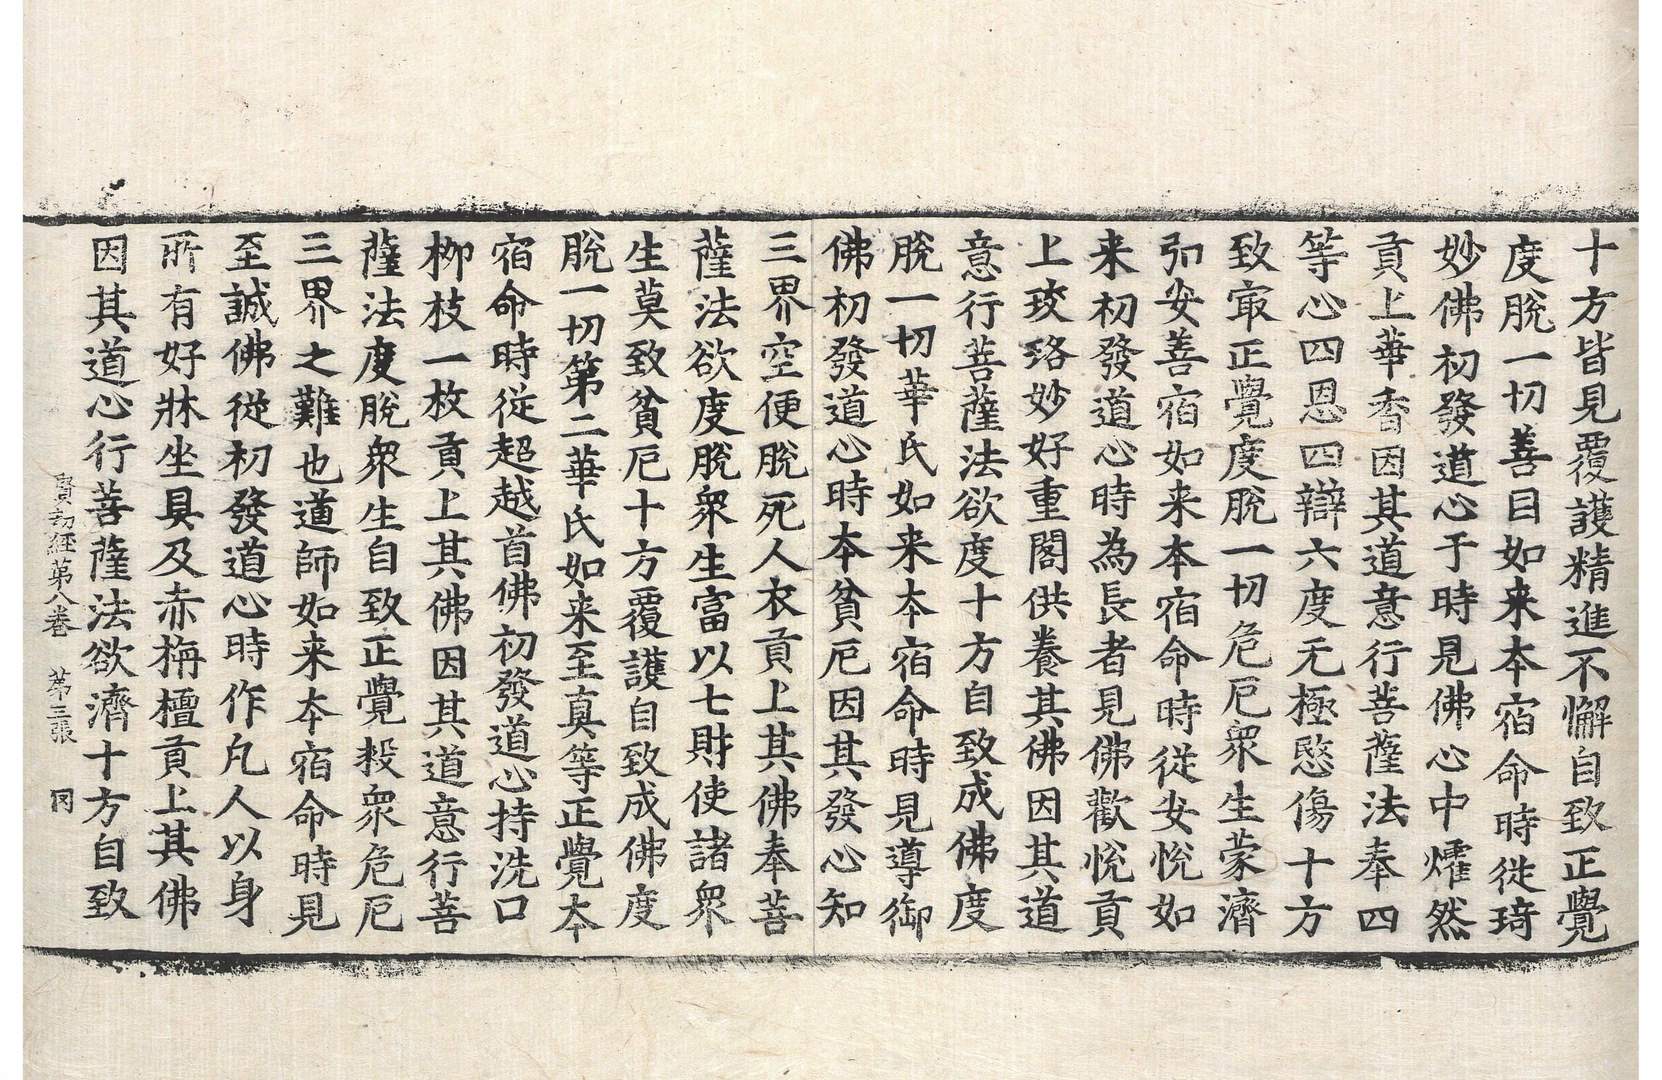 十方皆見覆護精進不懈自致正覺
度脫一切善目如来本宿命時從琦
妙佛初發道心于時見佛心中燿然
貢上華香因其道意行菩薩法奉四
等心四恩四辯六度无極愍傷十方
致㝡正覺度脫一切危厄衆生蒙濟
弘安善宿如来本宿命時從安悅如
来初發道心時為長者見佛歡悅貢
上琰珞妙好重閣供養其佛因其道
意行菩薩法欲度十方自致成佛度
脫一切華氏如来本宿命時見導御
佛初發道心時本貧厄因其發心知
三界空便脫死人衣貢上其佛奉菩
薩法欲度脫衆生富以七財使諸衆
生莫致貧厄十方覆護自致成佛度
脫一切第二華氏如来至真等正覺本
宿命時從超越首佛初發道心持洗口
柳枝一枚貢上其佛因其道意行菩
薩法度脫衆生自致正覺救衆危厄
三界之難也道師如来本宿命時見
至誠佛從初發道心時作凡人以身
所有好牀坐具及赤栴檀貢上其佛
因其道心行菩薩法欲濟十方自致
賢劫經第八卷 第三張 㒺